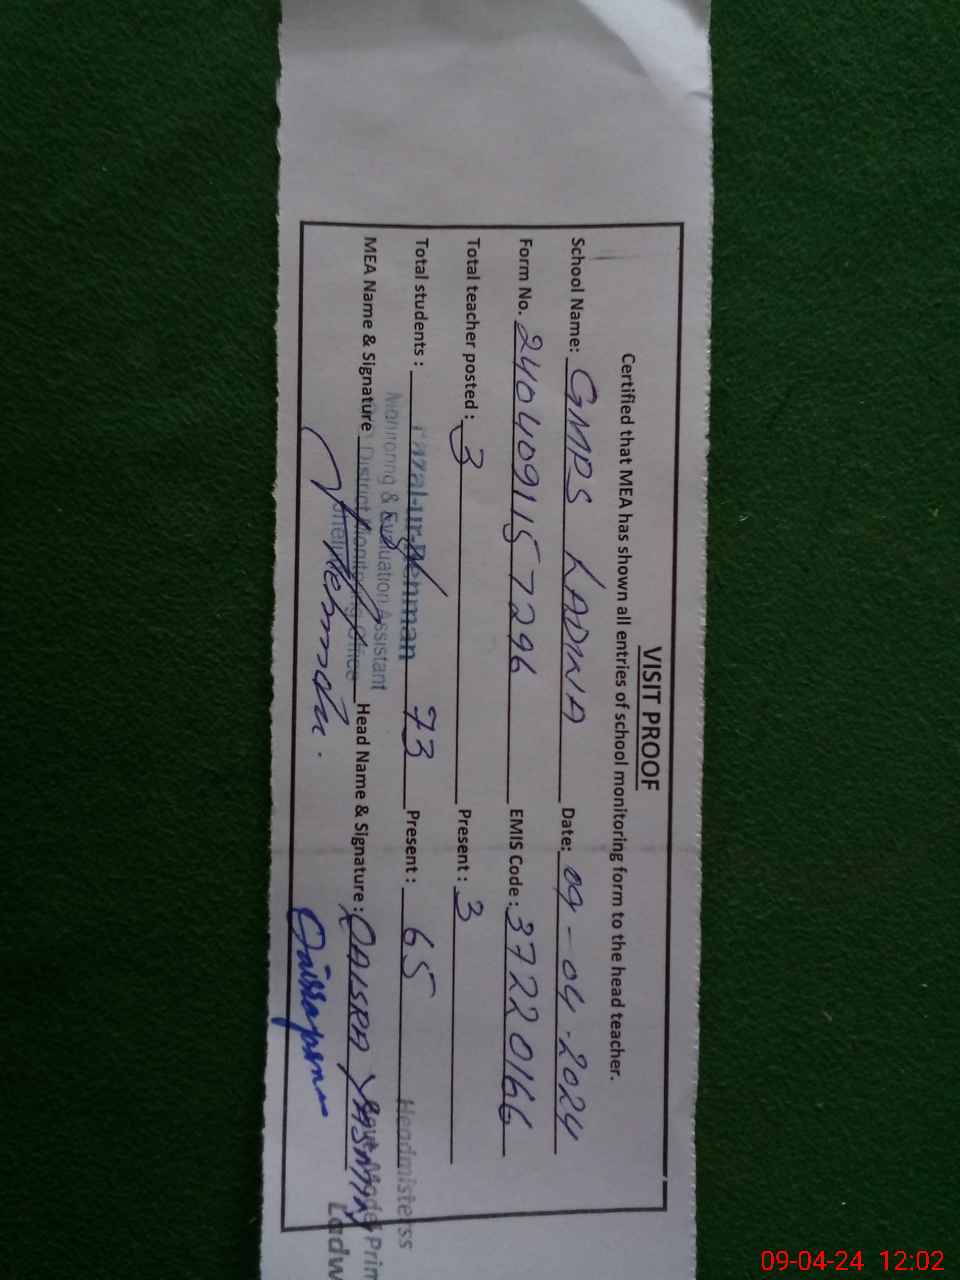 VISIT PROOF
Certified that MEA has shown all entries of school monitoring form to the head teacher.
School Name: GMPS LADWA Date: 09-04-2024
Form No. 2404091157296 EMIS Code: 37220166
Total teacher posted: 3 Present: 3
Total students: 73 Present: 65
Fazal-ur-Rehman
Monitoring & Evaluation Assistant
District Monitoring Office
MEA Name & Signature Head Name & Signature: QAISRA YASMIN
Headmisterss
Model Prim
Ladw
09-04-24 12:02